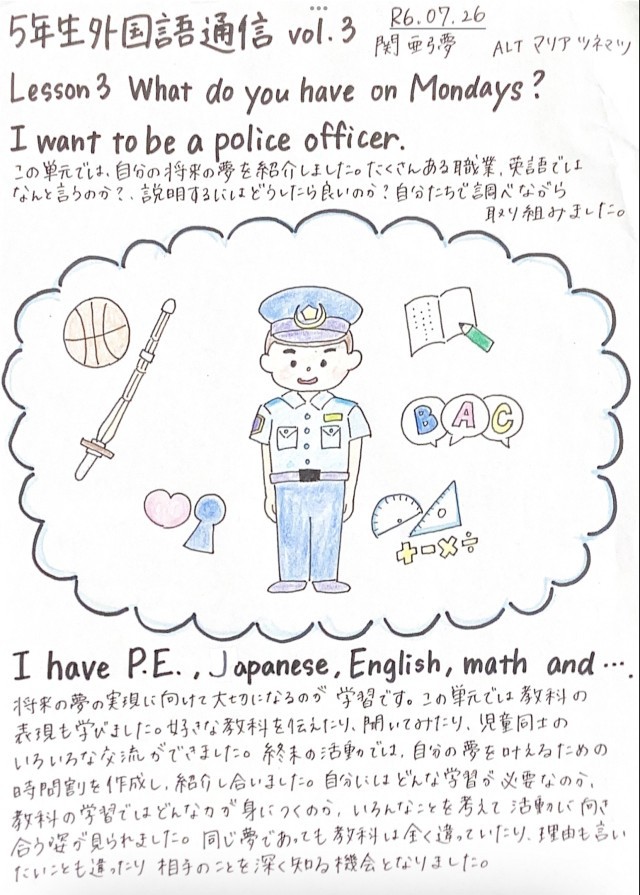 5年生外国語通信 vol.3
R6.07.26
関 亜弓夢 ALT マリア ツネマツ
Lesson3 What do you have on Mondays?
I want to be a police officer.
この単元では、自分の将来の夢を紹介しました。たくさんある職業、英語では
なんと言うのか?、説明するにはどうしたら良いのか?自分たちで調べながら
取り組みました。
B A C
+ - × ÷
I have P.E., Japanese, English, math and ….
将来の夢の実現に向けて大切になるのが 学習です。この単元では教科の
表現も学びました。好きな教科を伝えたり、聞いてみたり、児童同士の
いろいろな交流ができました。終末の活動では、自分の夢を叶えるための
時間割を作成し、紹介し合いました。自分にはどんな学習が必要なのか、
教科の学習ではどんな力が身につくのか、いろんなことを考えて活動に向き
合う姿が見られました。同じ夢であっても教科は全く違っていたり、理由も言い
たいことも違ったり 相手のことを深く知る機会となりました。